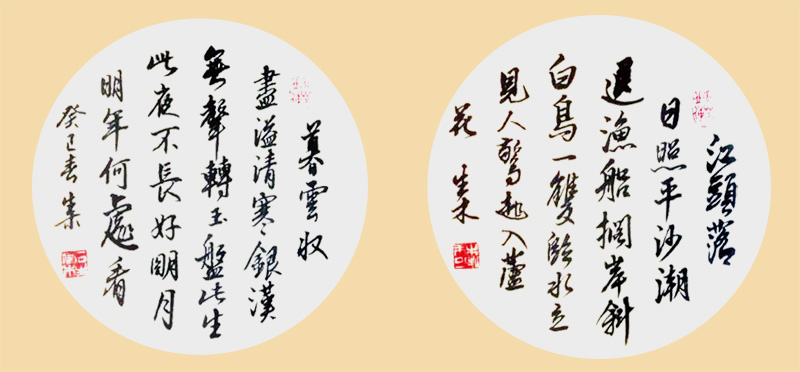 江頭落
日照平沙潮
退漁船擱岸斜
白鳥一雙臨水立
見人驚起入蘆
花
暮雲收
盡溢清寒銀漢
無聲轉玉盤此生
此夜不長好明月
明年何處看
癸巳春